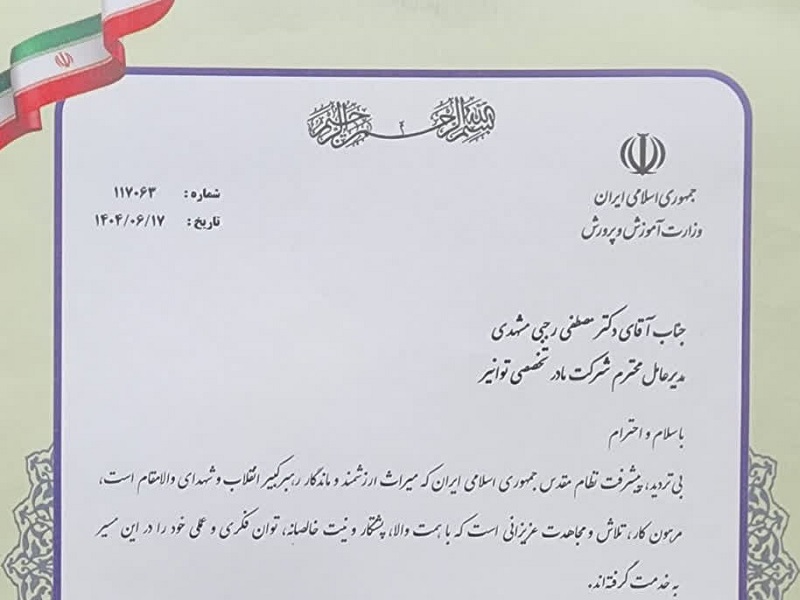 بسم الله الرحمن الرحیم
جمهوری اسلامی ایران
وزارت آموزش و پرورش
شماره : ۱۱۷۰۶۳
تاریخ : ۱۴۰۴/۰۶/۱۷
جناب آقای دکتر مصطفی رجبی مشهدی
مدیرعامل محترم شرکت مادر تخصصی توانیر
با سلام و احترام
بی‌تردید، پیشرفت نظام مقدس جمهوری اسلامی ایران که میراث ارزشمند و ماندگار رهبر کبیر انقلاب و شهدای والامقام است،
مرهون کار، تلاش و مجاهدت عزیزانی است که با همت والا، پشتکار و نیت خالصانه، توان فکری و عملی خود را در این مسیر
به خدمت گرفته‌اند.